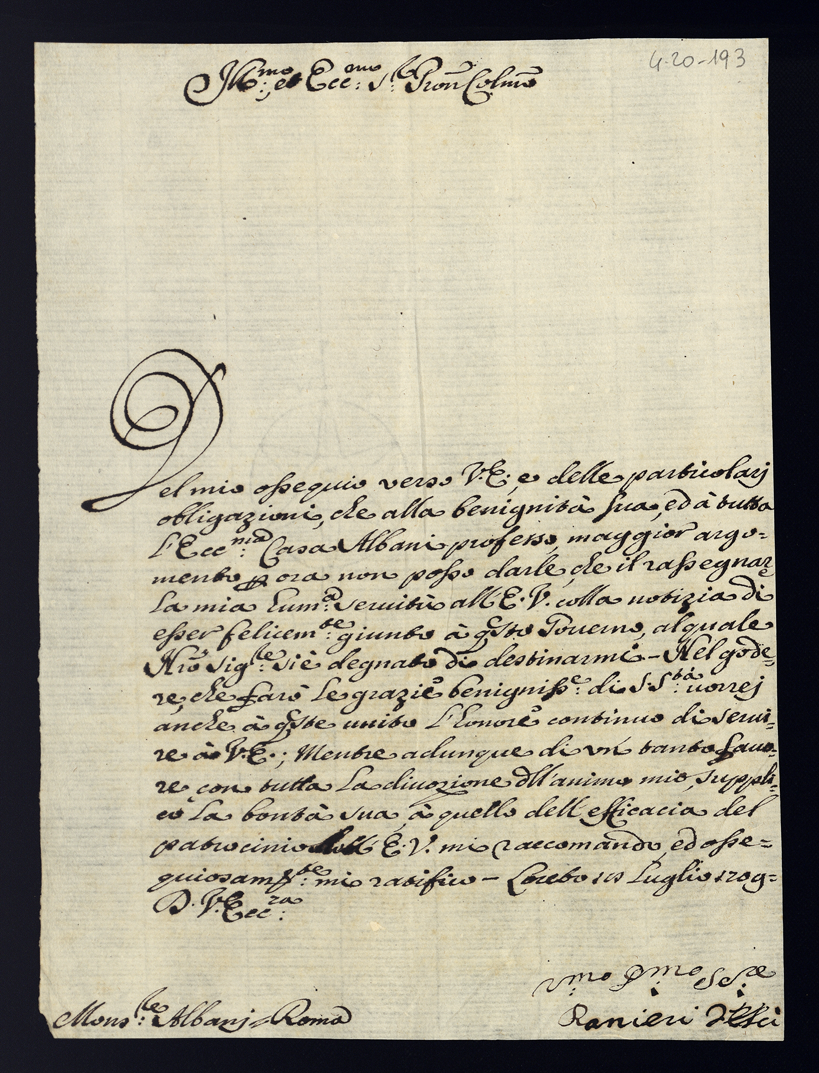 4-20-193
Ill.mo et Ecc.mo S.re Pron Colmo
Del mio ossequio verso V.E., e delle particolarj
obligazioni, che alla benignità sua, ed à tutta
l'Ecc.ma Casa Albani professo, maggior argo-
mento p ora non posso darle, che il rassegnare
la mia Hum.a servitù all'E.V. colla notizia di
esser felicem.te giunto à qsto Governo, al quale
Nro Sig.re si è degnato di destinarmi - Nel gode-
re, che farò le grazie benigniss.e di S.S.tà vorrej
anche à qste unito l'honore continuo di servi-
re à V.E.; Mentre adunque di un tanto favo-
re con tutta la divozione dll'animo mio, suppli-
co la bontà sua, à quello dell'efficacia del
patrocinio dell'E.V. mi raccomando, ed osse-
quiosam.te mi ratifico - Loreto Luglio 1709-
D. V. Ecc.za
Mons.re Albanj - Roma
V.mo D.mo Se.re
Ranieri d'Elci